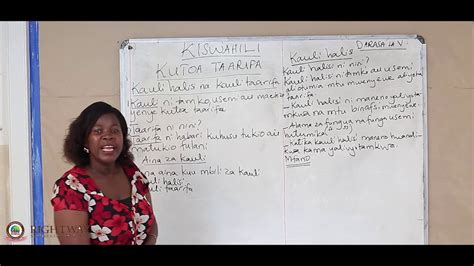 KISWAHILI
KUTOA TAARIFA
Kauli halisi na kauli taarifa
Kauli ni tamko, usemi au maelezo
yenye kutoa taarifa
Taarifa ni nini?
Taarifa ni habari kuhusu tukio au
matukio fulani
Aina za kauli
Kuna aina kuu mbili za kauli
Kauli halisi
Kauli taarifa
DARASA LA V
Kauli halisi
Kauli halisi ni nini?
Kauli halisi ni tamko au usemi
alioutumia mtu mwenyewe
taarifa
Kauli halisi ni maneno
na mtu binafsi
Alama za funga na fungua usemi
hutumika
Katika kauli halisi maneno
kama yalivyotamkwa
Mfano
RIGHTWAY